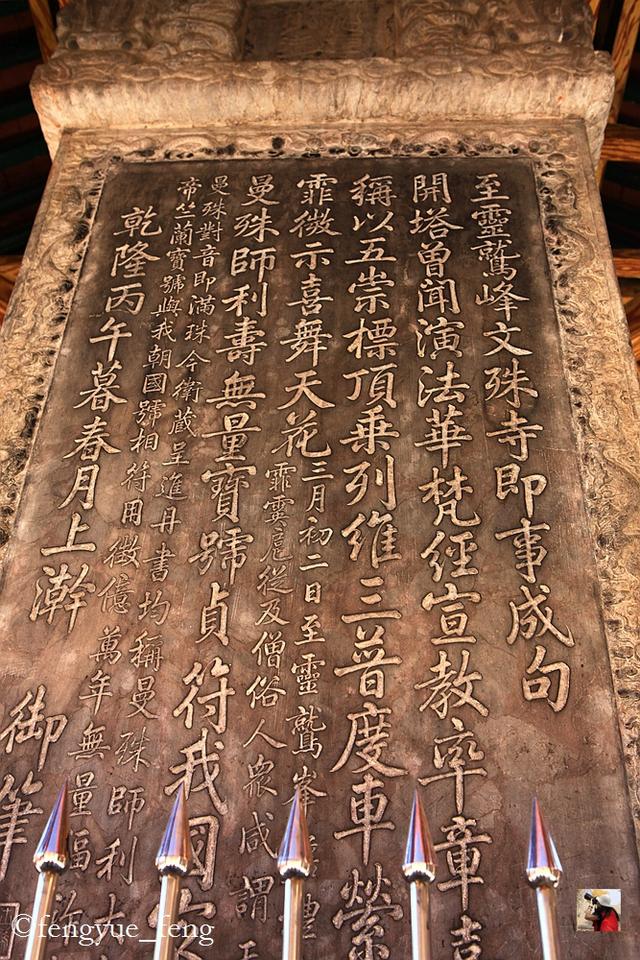 至靈鷲峰文殊寺即事成句
開塔曾聞演法華梵經宣教率章
稱以五崇標頂乘列維三普度車縈
霏微示喜舞天花
三月初二日至靈鷲峯
霏雲扈從及僧俗人衆咸謂
曼殊師利壽無量寶號貞符我國家
曼殊對音即滿珠今衛藏呈進丹書均稱曼殊師利大
帝竺蘭寶號與我朝國號相符用徵億萬年無量福祚
乾隆丙午暮春月上澣
御筆
©fengyue_feng